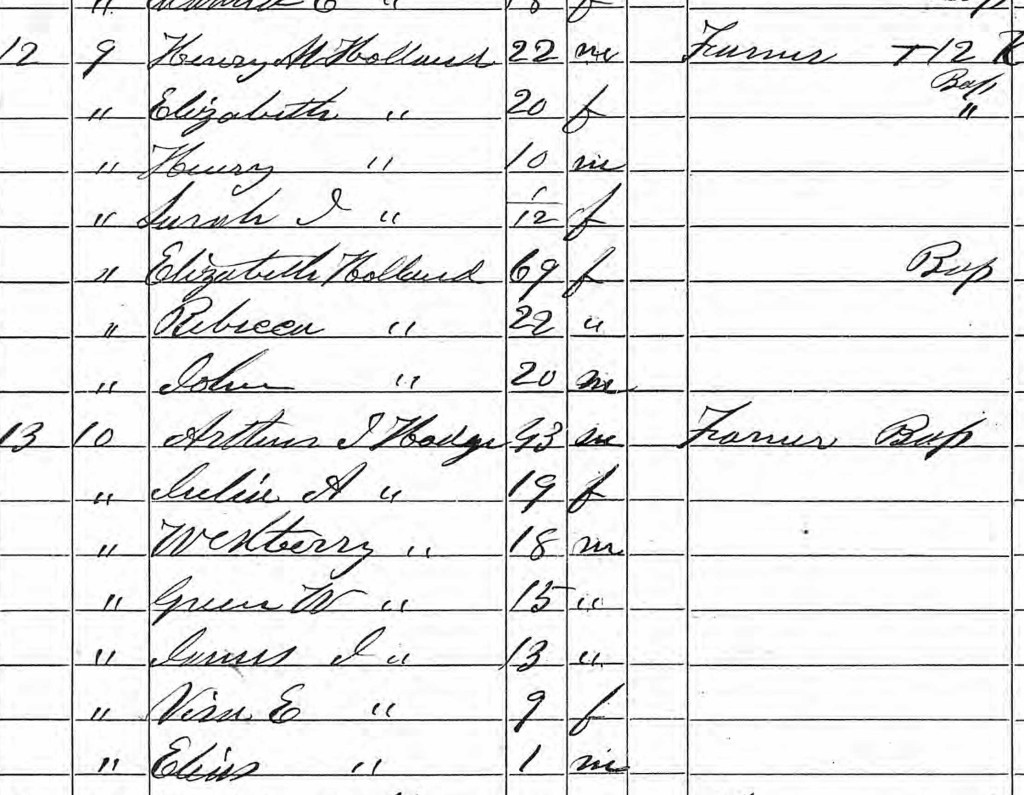 12 9 Henry M Holland 22 m Farmer T12 R
Bap
" Elizabeth " 20 f "
" Henry " 10 m
" Sarah J " 1/12 f
" Elizabeth Holland 69 f Bap
" Rebecca " 22 "
" John " 20 m
13 10 Arthur J Hodge 43 m Farmer Bap
" Julia A " 19 f
" Westberry " 18 m
" Green W " 15 "
" James J " 13 "
" Vina E " 9 f
" Elias " 1 m